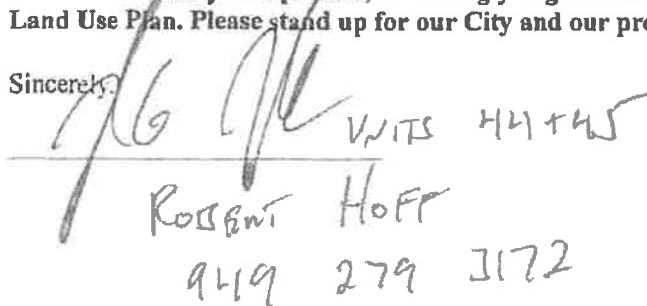 Land Use Plan. Please stand up for our City and our pro
Sincerely,
UNITS 44+45
ROBERT HOFF
949 279 3172